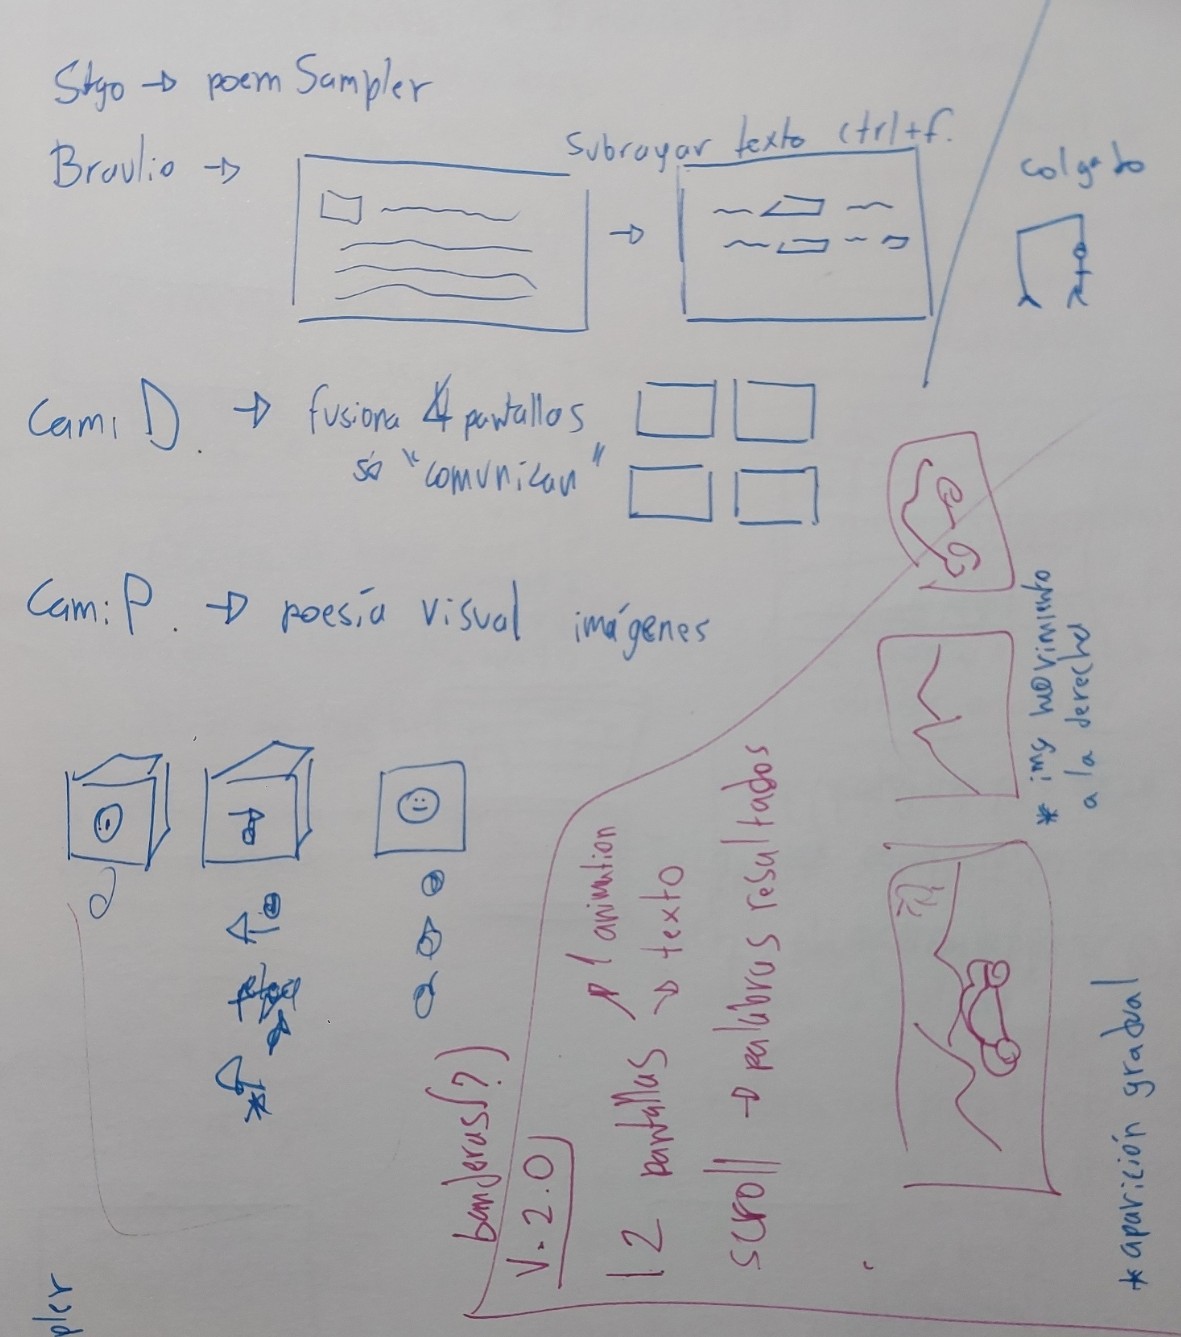 Stgo → poem Sampler
Braulio →
Subrayar texto ctrl+f.
colgado
Cami D. → fusiona 4 pantallas
se "comunican"
Cami P. → poesía visual imágenes
banderas(?)
V. 2.0
12 pantallas
1 animation
→ texto
scroll → palabras resultados
* img movimiento
a la derecha
* aparición gradual
pler